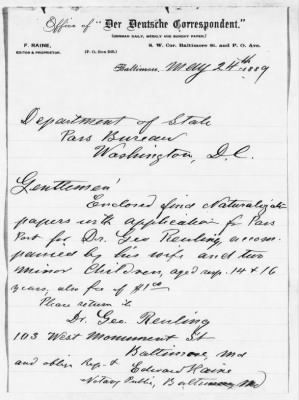 Office of "Der Deutsche Correspondent."
(GERMAN DAILY, WEEKLY AND SUNDAY PAPER.)
F. RAINE,
EDITOR & PROPRIETOR.
(P. O. Box
S. W. Cor. Baltimore St. and P. O. Ave.
Baltimore, May 24th 1889
Department of State
Pass Bureau
Washington, D.C.
Gentlemen
Enclosed find Naturalization
papers with application for Pass
Port for Dr. Geo Reuling, accom-
panied by his wife and two
minor Children, aged resp. 14 & 16
years, also fee of $1.00
Please return to
Dr. Geo. Reuling
103 West Monument St
Baltimore, Md
and oblige Resp.
Edward Raine
Notary Public, Baltimore, Md